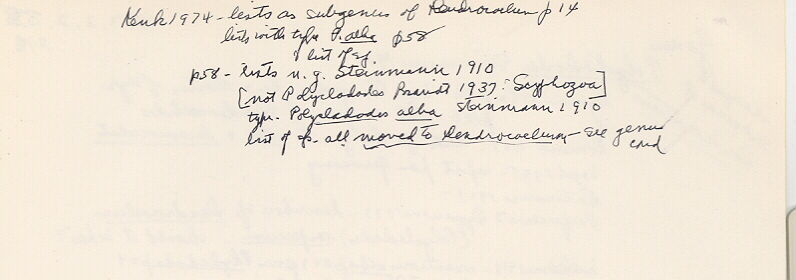 Kenk 1974 - lists as subgenus of Dendrocoelum p 14
lists with type P. alba p58
& list of sp.
p58 - lists n. g. Steinmann 1910
[not Polycladodes Brandt 1937: Scyphozoa]
type. Polycladodes alba Steinmann 1910
list of sp. all moved to Dendrocoelum - see genus
card